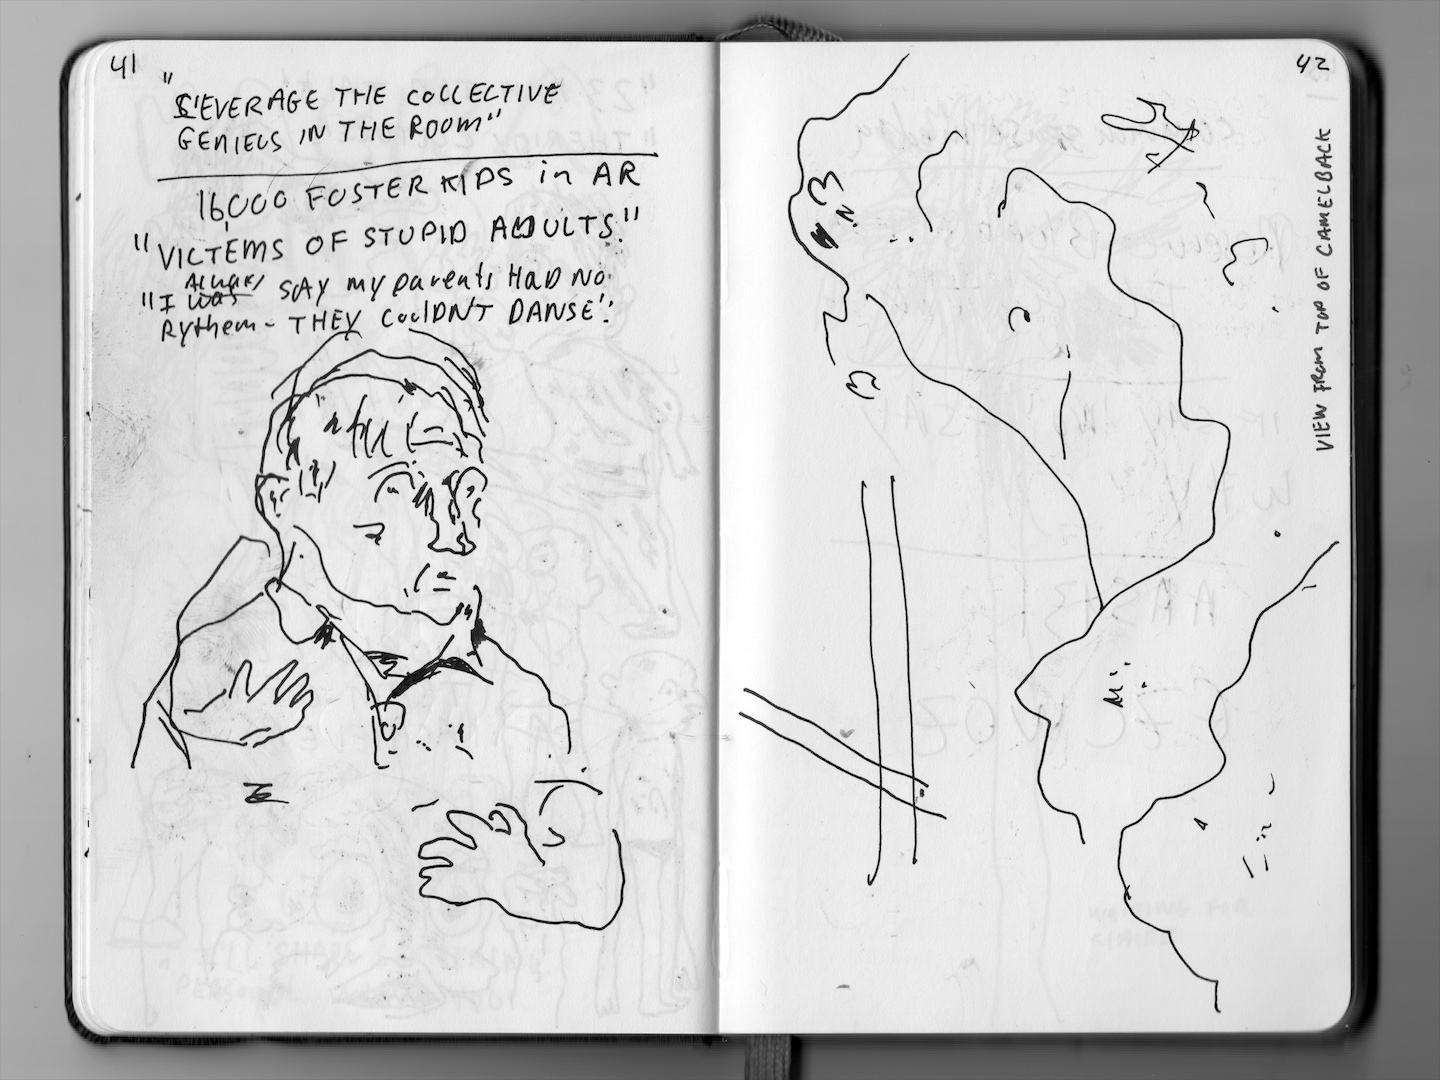 41
"LEVERAGE THE COLLECTIVE
GENIEUS IN THE ROOM"
16,000 FOSTER KIDS in AR
"VICTEMS OF STUPID ADULTS."
ALWAYS
"I was SAY my parents HAD NO
Rythem - THEY COULDN'T DANSE".
42
VIEW FROM TOP OF CAMELBACK